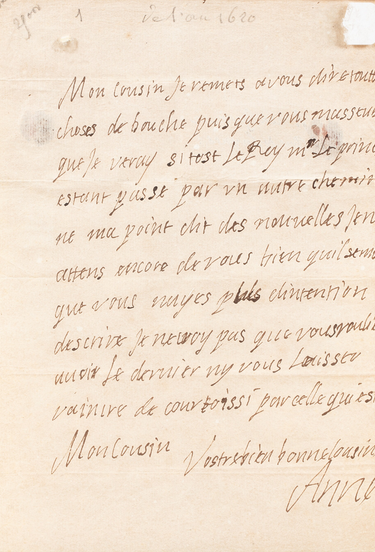 1 de l'an 1620
Mon cousin Je remets a vous dire toutte
choses de bouche puis que vous masseu
que Je veray si tost Le Roy mr Le prin
estant passé par un autre chemin
ne ma point dit des nouvelles Jen
attens encore de vous bien quil sem
que vous nayes plus dintention
descrire Je ne voy pas que vous voulie
avoir Le dernier ny vous Laisser
vaincre de courtoissi par celle qui es
Mon Cousin
Vostre bien bonne Cousin
Anne